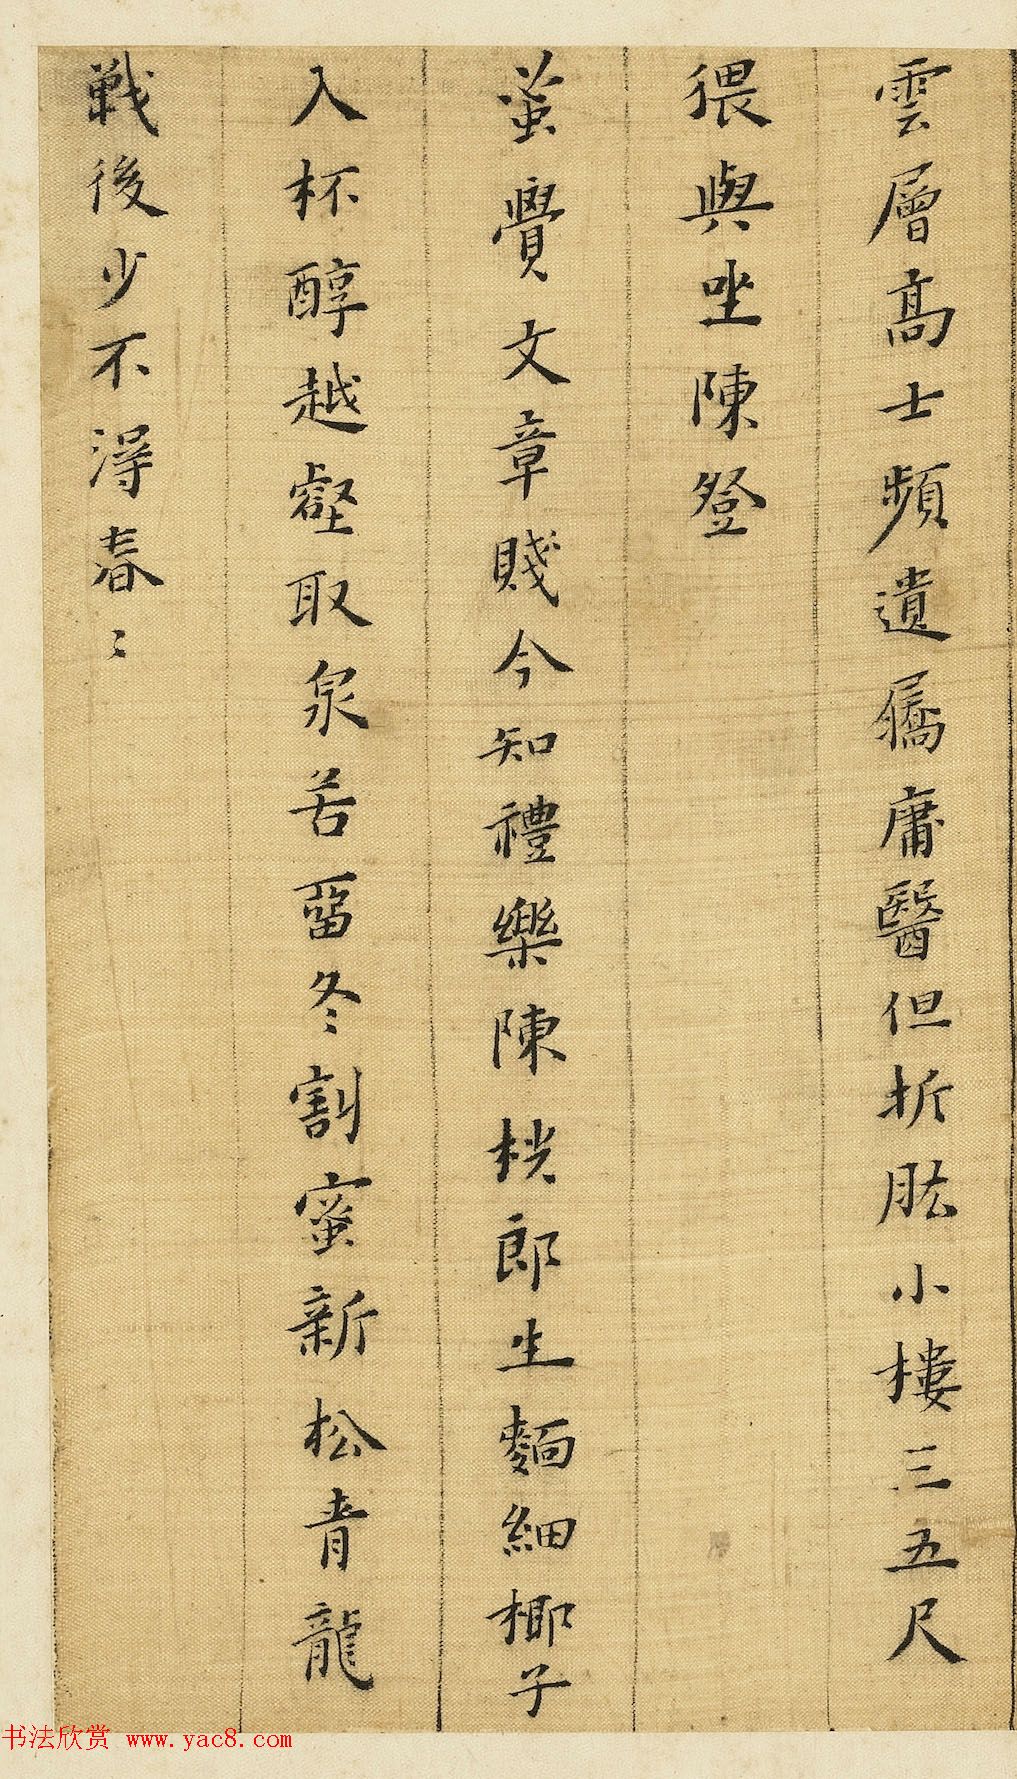 雲層高士頻遺屩庸醫但折肱小樓三五尺
猥與坐陳登
蚤覺文章賤今知禮樂陳桄郎生麵細椰子
入杯醇越壑取泉苦留冬割蜜新松青龍
戰後少不得春〻
书法欣赏 www.yac8.com